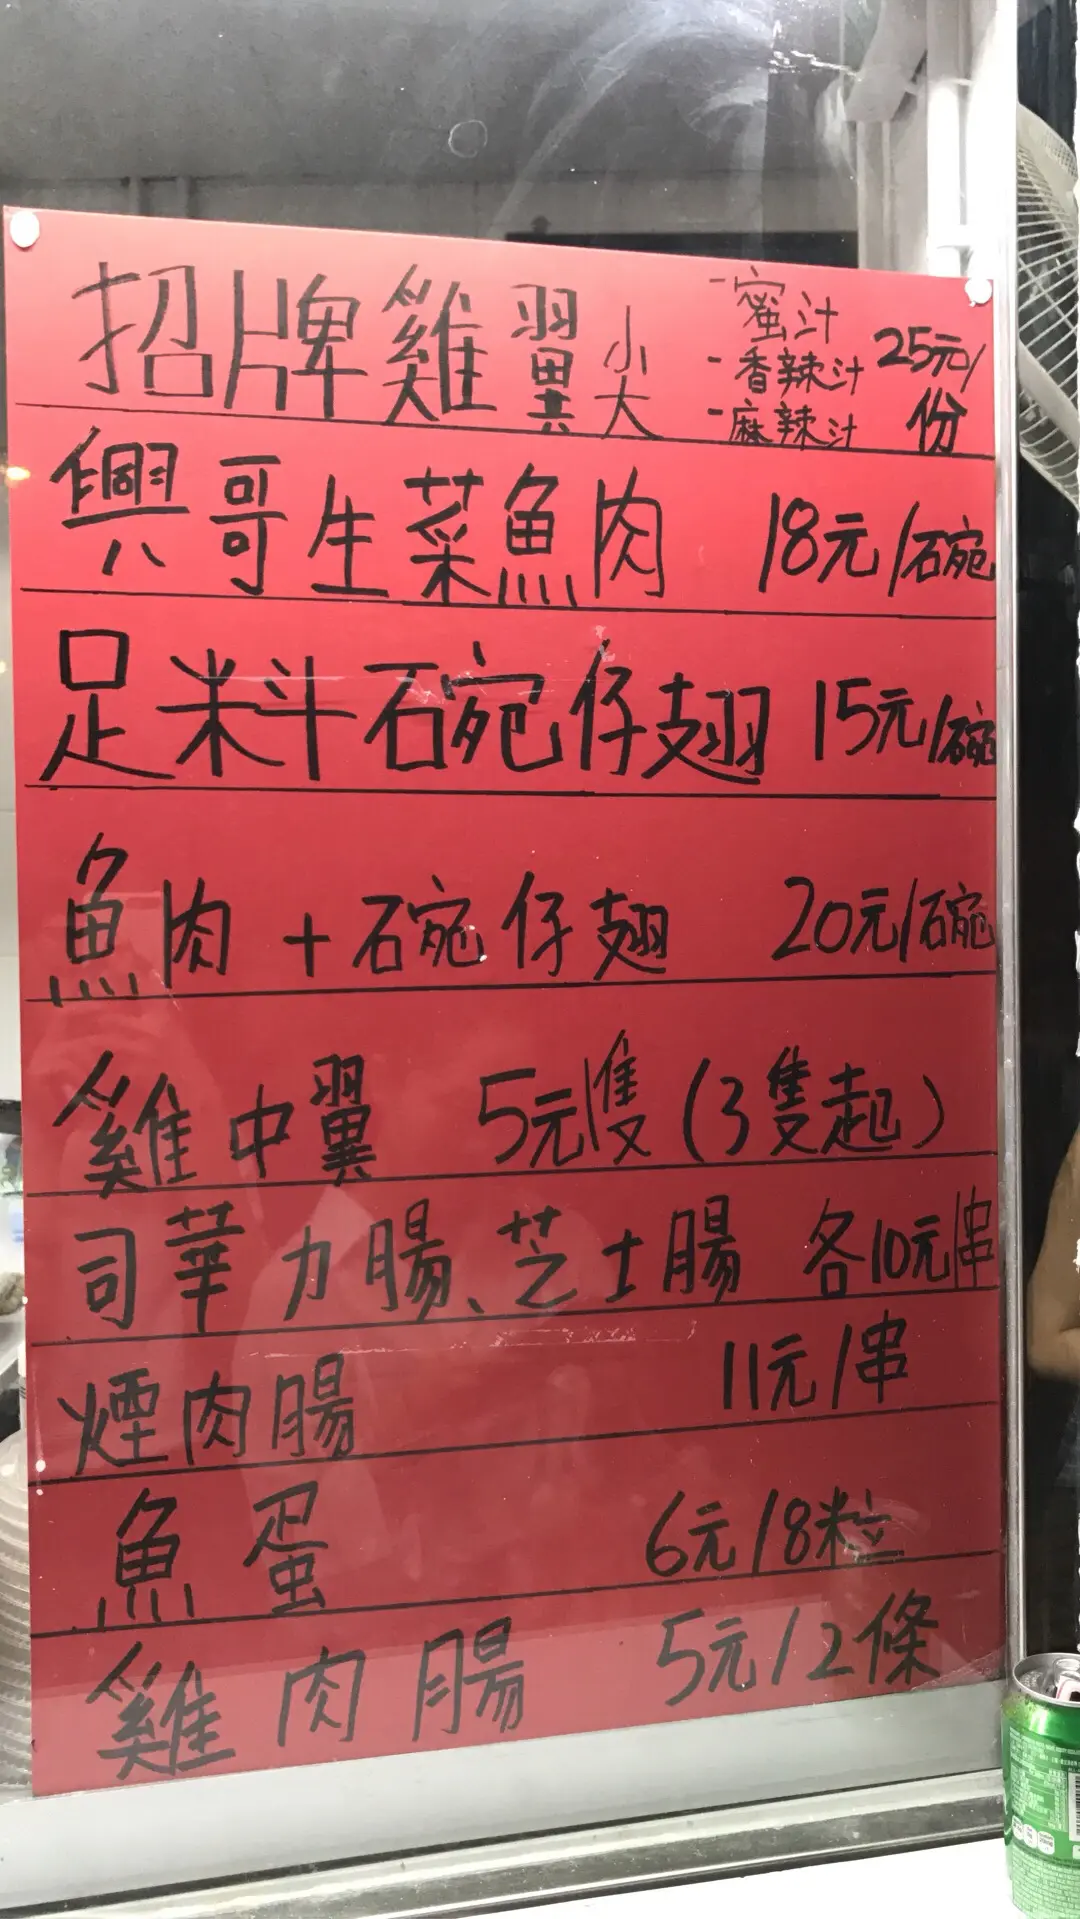 招牌雞翼尖
-蜜汁
-香辣汁
-麻辣汁
25元/份
興哥生菜魚肉 18元/碗
足料碗仔翅 15元/碗
魚肉+碗仔翅 20元/碗
雞中翼 5元/隻(3隻起)
司華力腸、芝士腸 各10元/串
煙肉腸 11元/串
魚蛋 6元/8粒
雞肉腸 5元/2條